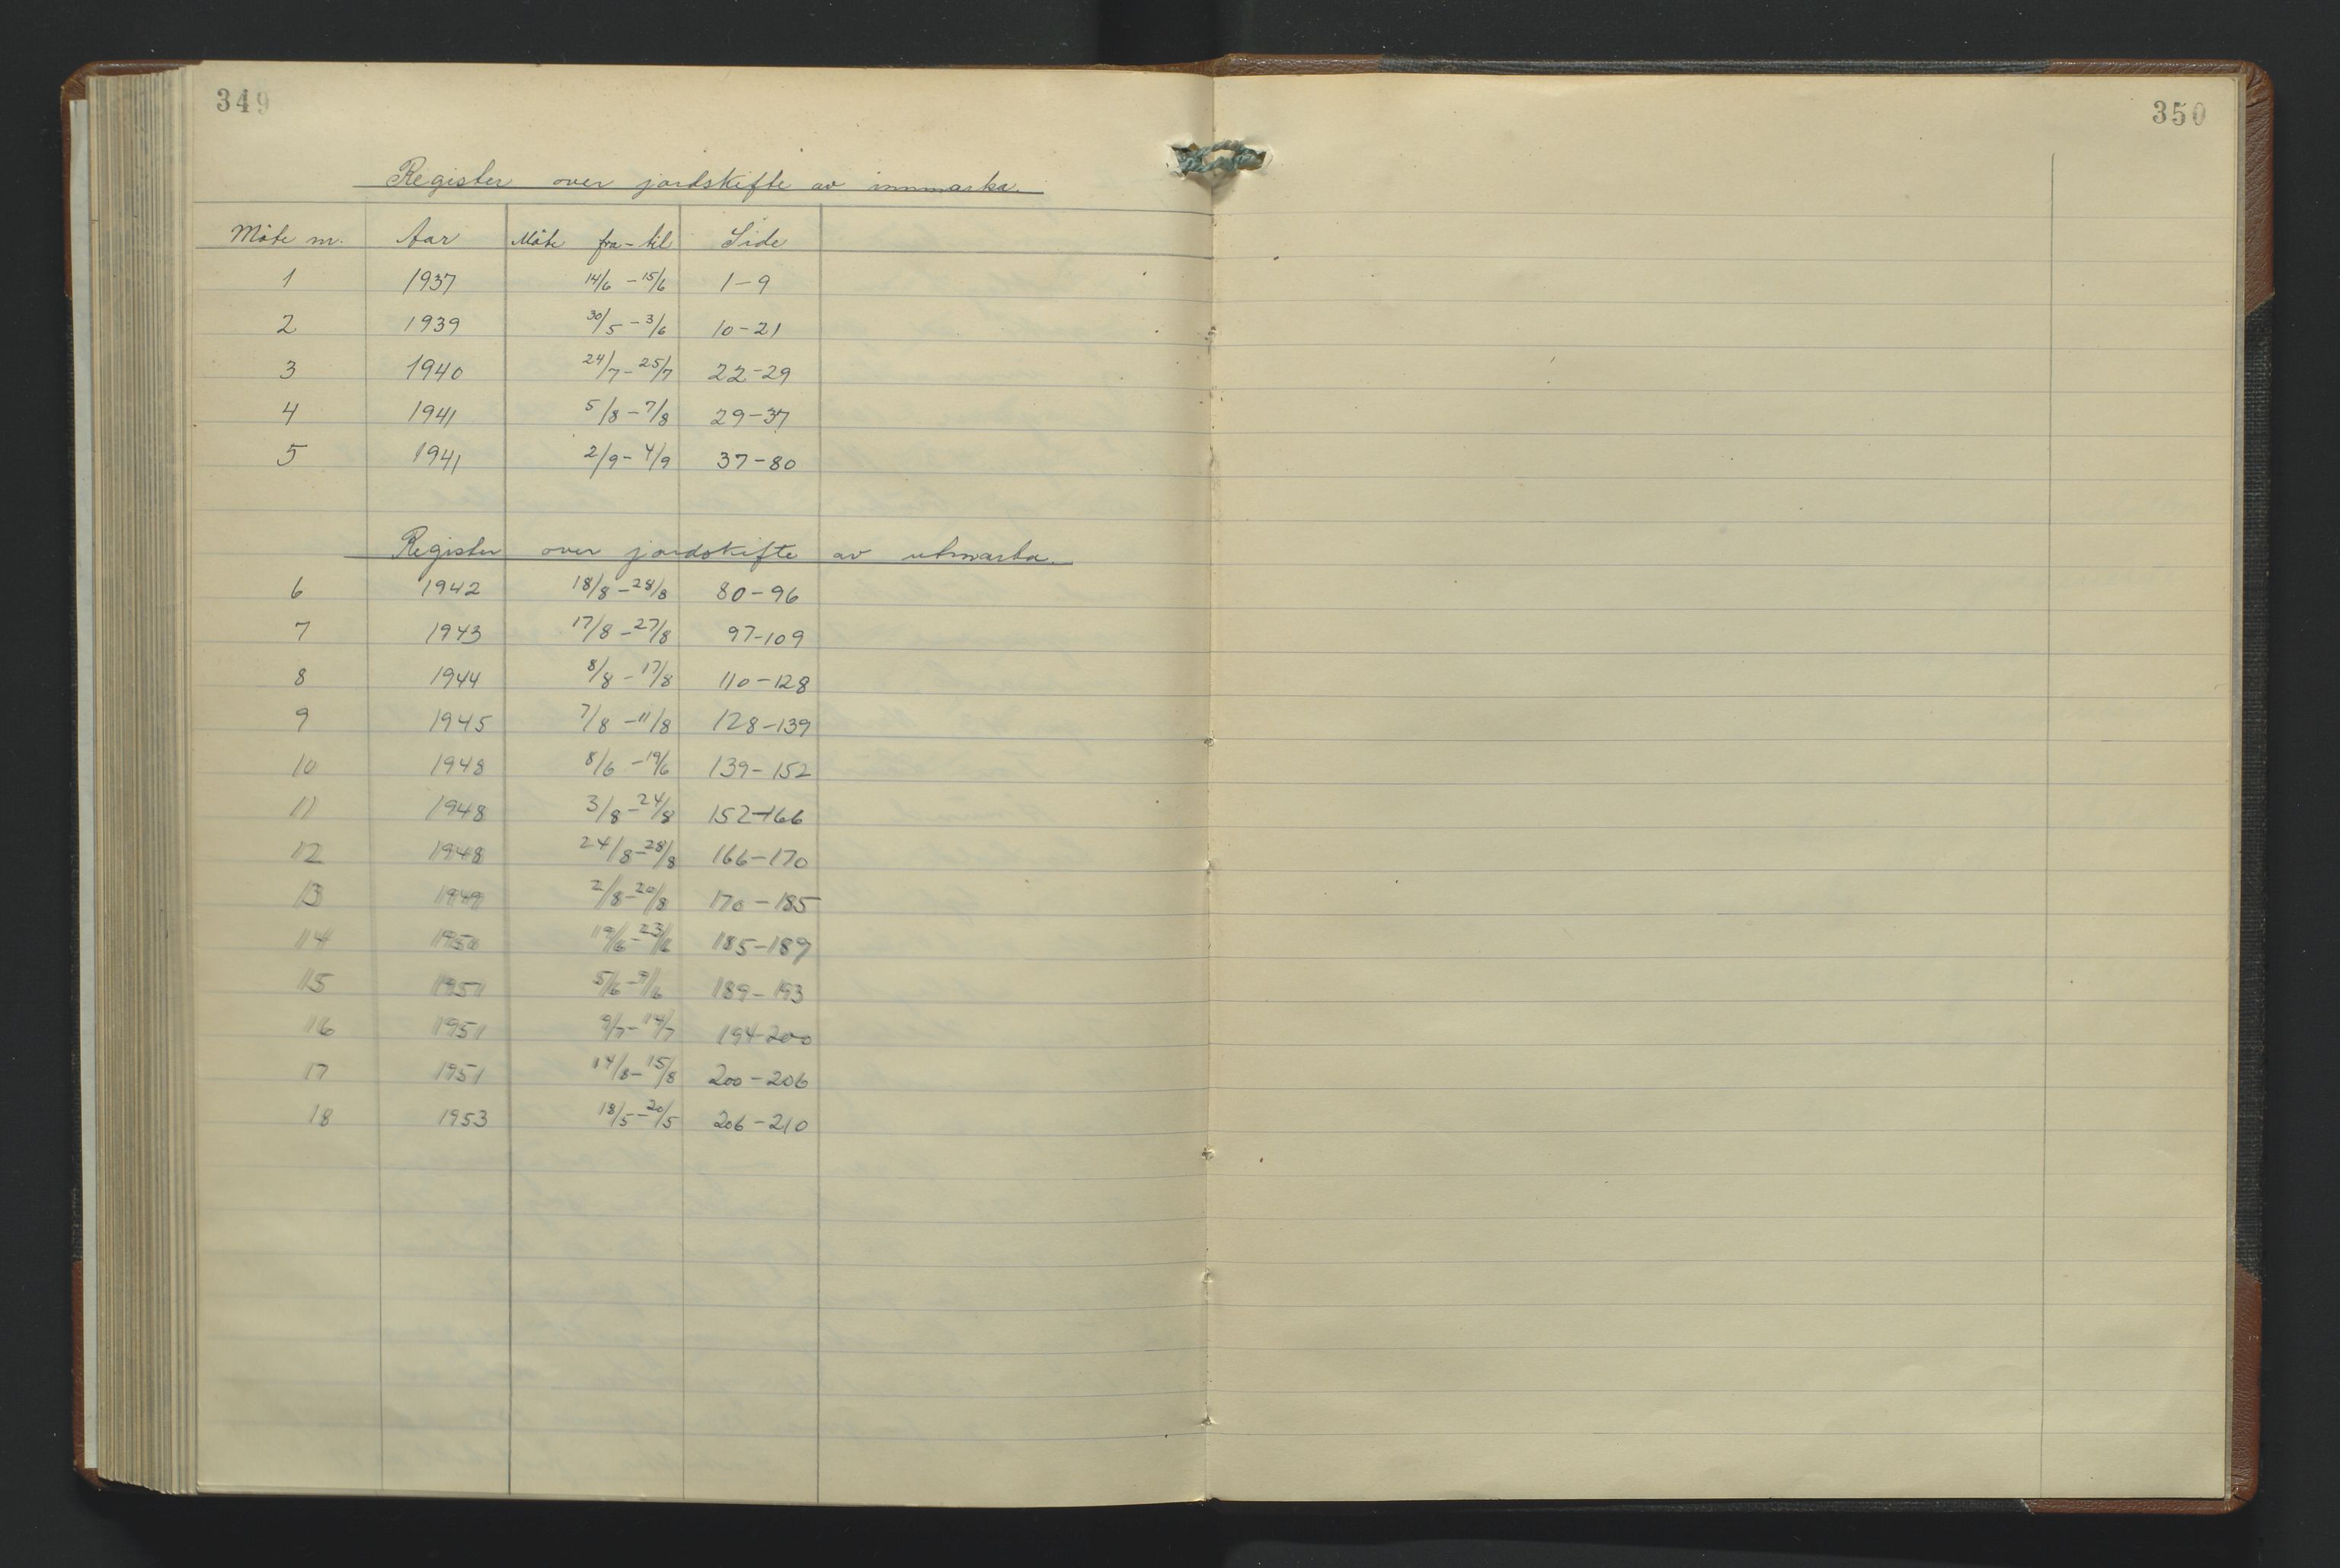 349
350
Register over jordskifte av innmarka.
Møte nr. Aar Møte fra-til Side
1 1937 14/6 - 15/6 1-9
2 1939 30/5 - 3/6 10-21
3 1940 24/7 - 25/7 22-29
4 1941 5/8 - 7/8 29-37
5 1941 2/9 - 4/9 37-80
Register over jordskifte av utmarka.
6 1942 18/8 - 28/8 80-96
7 1943 17/8 - 27/8 97-109
8 1944 8/8 - 17/8 110-128
9 1945 7/8 - 11/8 128-139
10 1948 8/6 - 19/6 139-152
11 1948 3/8 - 24/8 152-166
12 1948 24/8 - 28/8 166-170
13 1949 2/8 - 20/8 170-185
14 1950 19/6 - 23/6 185-189
15 1951 5/6 - 9/6 189-193
16 1951 9/7 - 14/7 194-200
17 1951 14/8 - 15/8 200-206
18 1953 18/5 - 20/5 206-210